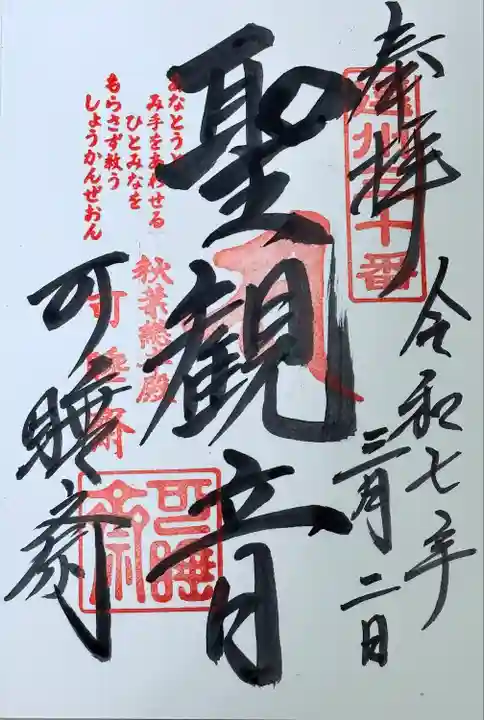 奉拝
遠州三十番
令和七年
三月二日
聖観音
あなとうと
み手をあわせる
ひとみなを
もらさず救う
しょうかんぜおん
秋葉總本殿
可睡斎
可睡斎
可睡斎